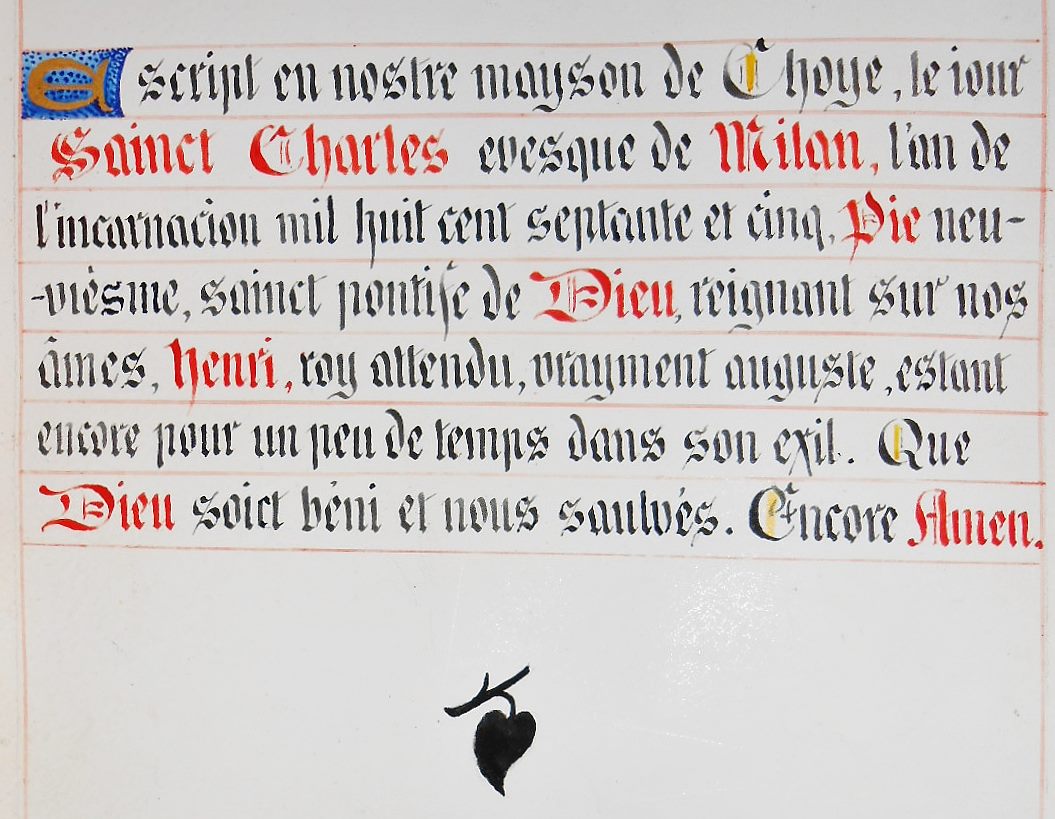 Escript en nostre mayson de Choye, le iour
Sainct Charles evesque de Milan, l'an de
l'incarnacion mil huit cent septante et cinq, Pie neu-
-vièsme, sainct pontife de Dieu, reignant sur nos
âmes, Henri, roy attendu, vrayment auguste, estant
encore pour un peu de temps dans son exil. Que
Dieu soict béni et nous saulvés. Encore Amen.